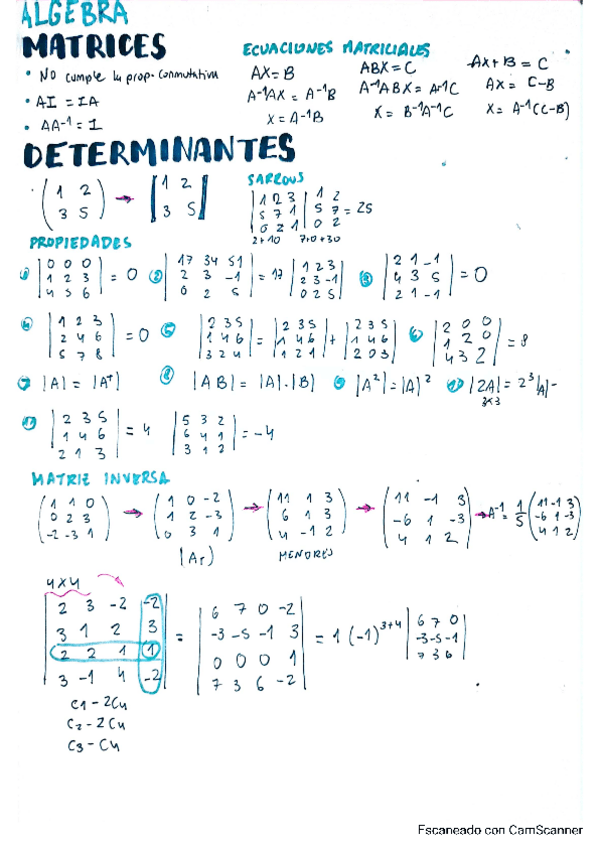 ALGEBRA
MATRICES
• No cumple la prop. conmutativa
• AI = IA
• AA⁻¹ = I
ECUACIONES MATRICIALES
AX = B
A⁻¹AX = A⁻¹B
X = A⁻¹B
ABX = C
A⁻¹ABX = A⁻¹C
X = B⁻¹A⁻¹C
AX + B = C
AX = C - B
X = A⁻¹(C - B)
DETERMINANTES
(1 2 → |1 2
3 5) 3 5|
SARROUS
|1 2 3| 1 2
|5 7 1| 5 7 = 25
|0 2 1| 0 2
2+10 7+0+30
PROPIEDADES
① |0 0 0 / 1 2 3 / 4 5 6| = 0 ② |17 34 51 / 2 3 -1 / 0 2 5| = 17 |1 2 3 / 2 3 -1 / 0 2 5| ③ |2 1 -1 / 4 3 5 / 2 1 -1| = 0
④ |1 2 3 / 2 4 6 / 5 7 8| = 0 ⑤ |2 3 5 / 1 4 6 / 3 2 4| = |2 3 5 / 1 4 6 / 1 2 1| + |2 3 5 / 1 4 6 / 2 0 3| ⑥ |2 0 0 / 1 2 0 / 4 3 2| = 8
⑦ |A| = |Aᵗ| ⑧ |AB| = |A|·|B| ⑨ |A²| = |A|² ⑩ |2A| = 2³|A|
3x3
⑪ |2 3 5 / 1 4 6 / 2 1 3| = 4 |5 3 2 / 6 4 1 / 3 1 2| = -4
MATRIZ INVERSA
(1 1 0 / 0 2 3 / -2 -3 1) → (1 0 -2 / 1 2 -3 / 0 3 1) → (11 1 3 / 6 1 3 / 4 -1 2) → (11 -1 3 / -6 1 -3 / 4 1 2) → A⁻¹ = 1/5 (11 -1 3 / -6 1 -3 / 4 1 2)
MENORES
4x4
|2 3 -2 -2 / 3 1 2 3 / 2 2 1 1 / 3 -1 4 -2| = |6 7 0 -2 / -3 -5 -1 3 / 0 0 0 1 / 7 3 6 -2| = 1 (-1)³⁺⁴ |6 7 0 / -3 -5 -1 / 7 3 6|
C1 - 2C4
C2 - 2C4
C3 - C4
Escaneado con CamScanner